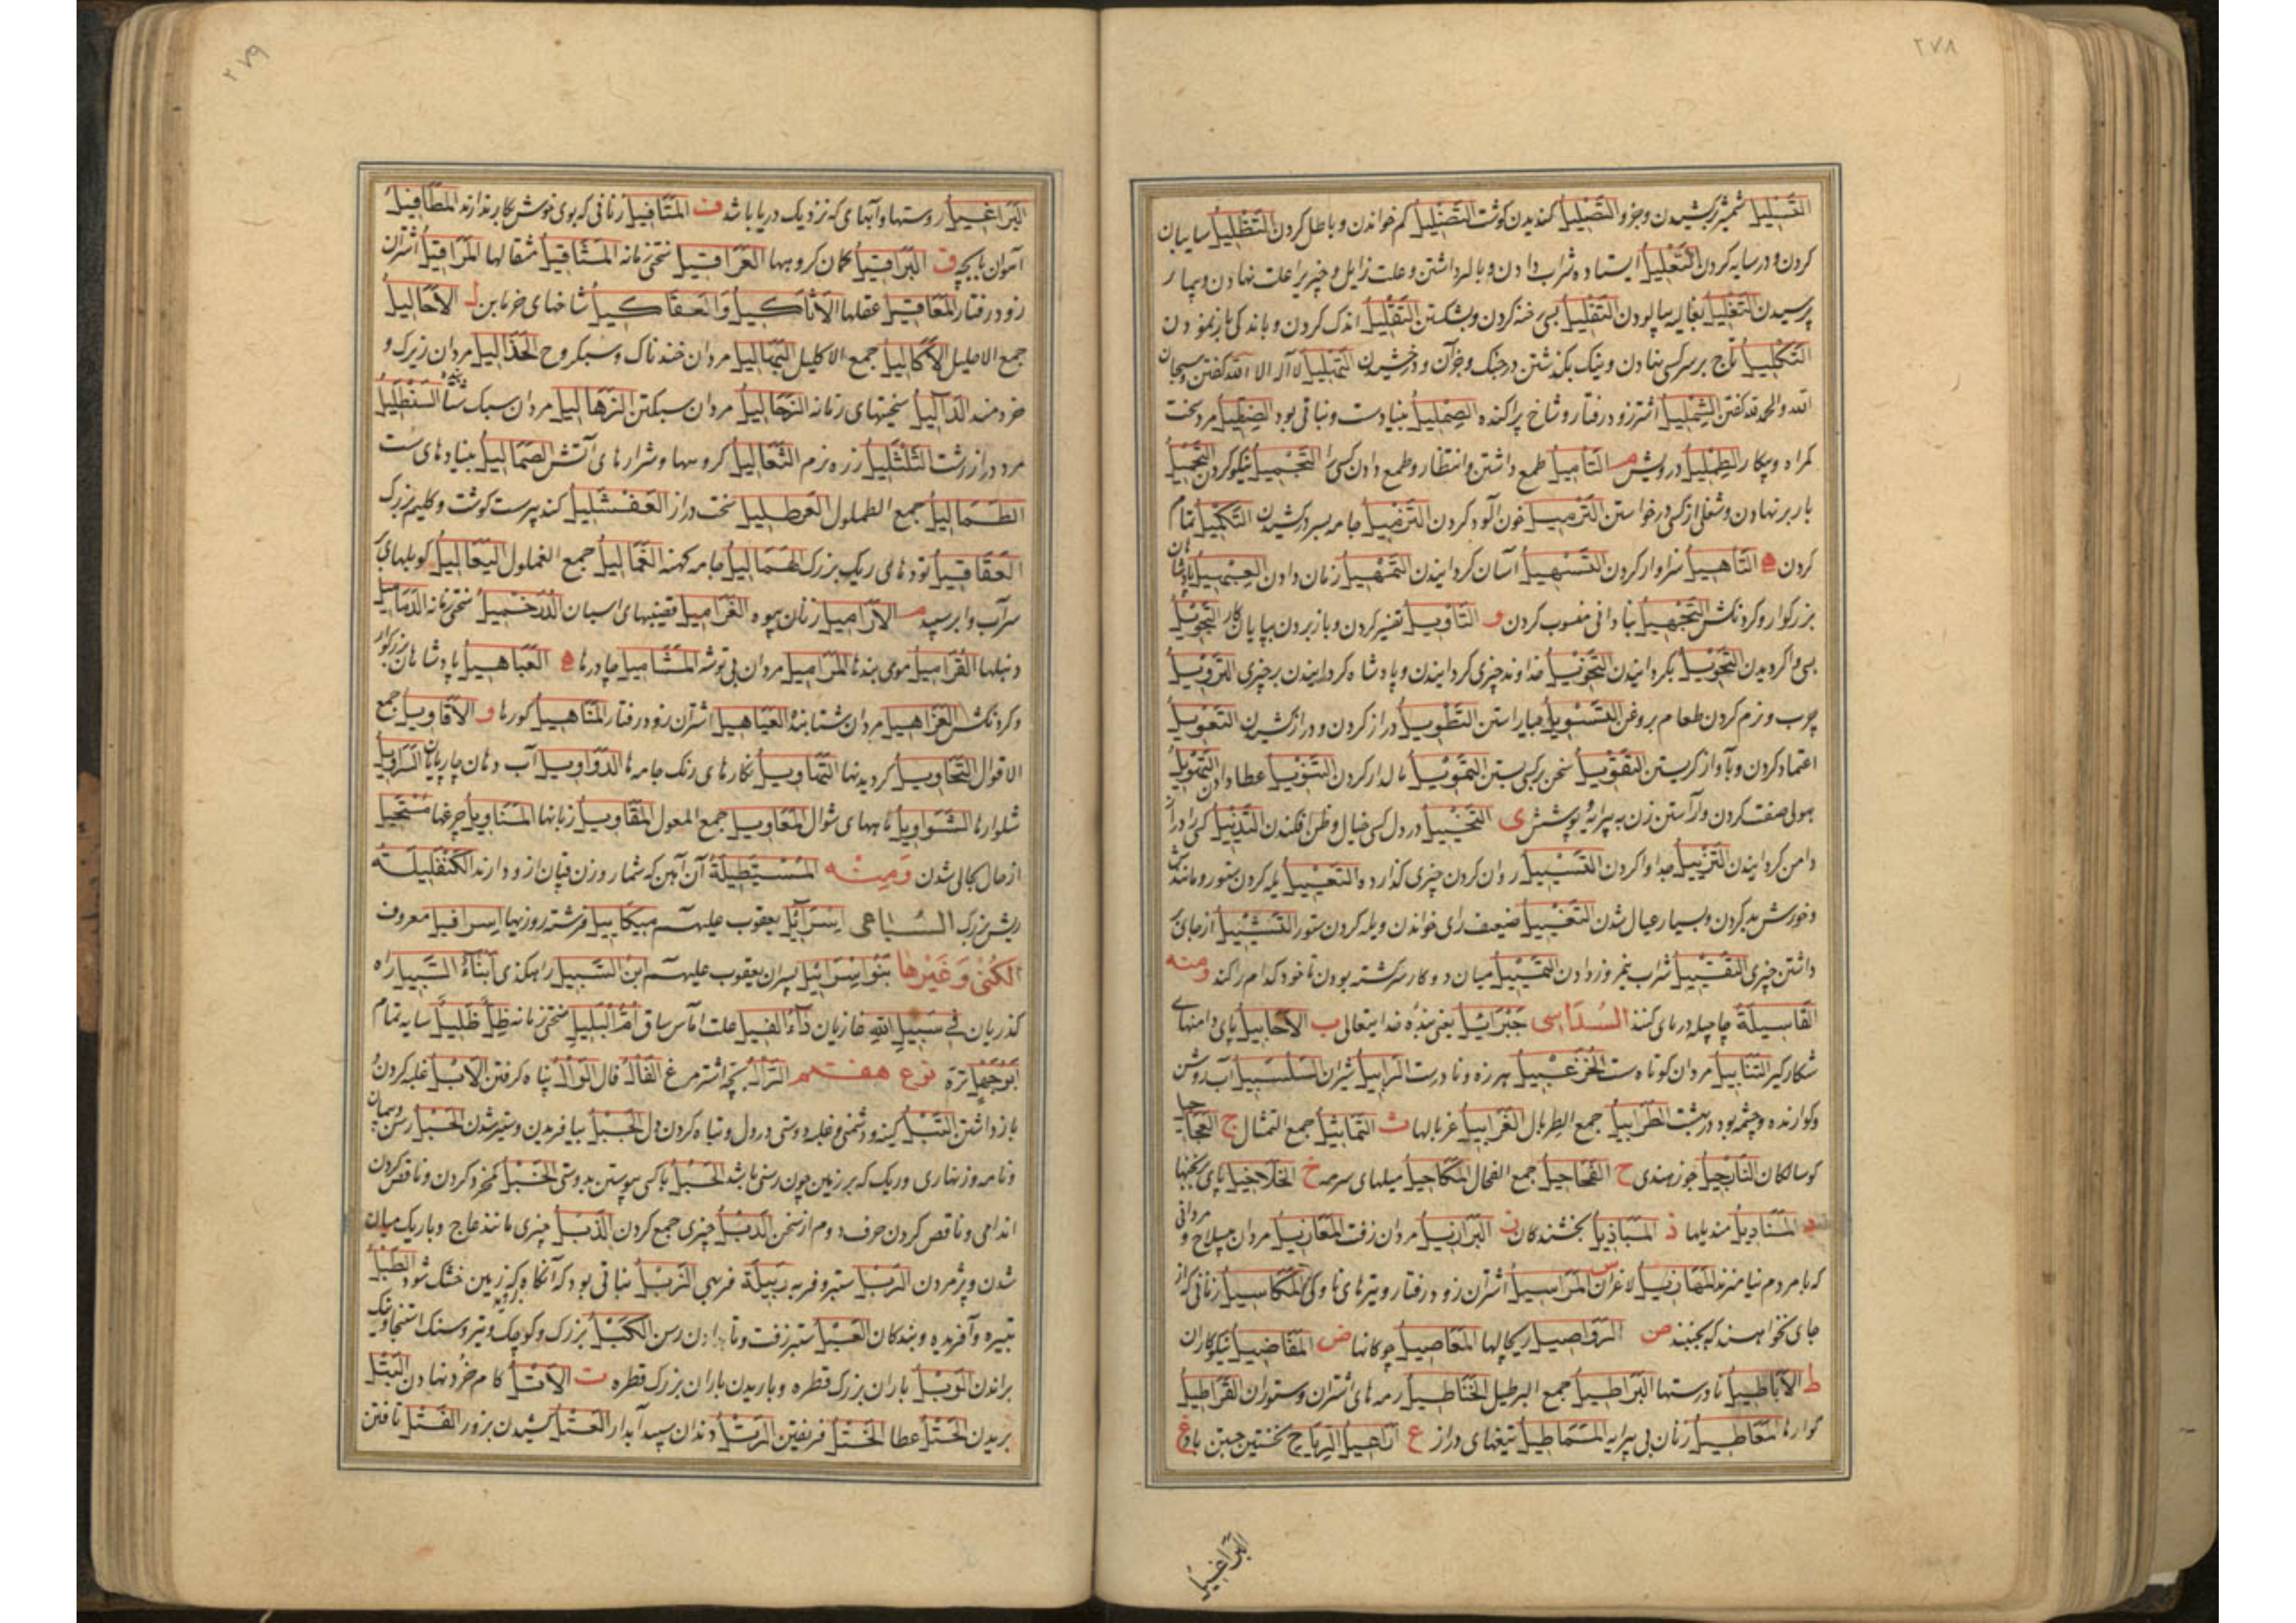 ٢٧٨
التَّسْلِيلُ شمشیر برکشیدن وجزو التَّصْلِيلُ کندیدن کوشت التَّضْلِيلُ کم خواندن و باطل کردن التَّظْلِيلُ سایبان
کردن و در سایه کردن التَّعْلِيلُ ایستاده شراب دادن و علت نهادن و بیمار
پرسیدن التَّغْلِيلُ بغالیه بیالودن التَّفْلِيلُ بسی رخنه کردن و بشکستن التَّقْلِيلُ اندک کردن و باندکی باز نمودن
التَّكْلِيلُ تاج بر سر کسی نهادن و نیک بکذشتن در جنک وجز آن و درخشیدن التَّهْلِيلُ لا اله الا الله کفتن و سبحان
الله والحمد لله کفتن الشِّمْلِيلُ اشتر زود رفتار و شاخ پراکنده الصِّمْلِيلُ بنیاد ست و نباتی بود الضِّلِّيلُ مرد سخت
کمراه و بیکار الطِّمْلِيلُ درویش م التَّأْمِيلُ طمع داشتن و انتظار و طمع دادن کسی را التَّجْمِيلُ نیکو کردن التَّحْمِيلُ
بار بر نهادن و شغلی از کسی درخواستن التَّرْمِيلُ خون آلود کردن التَّزْمِيلُ جامه بسر درکشیدن التَّكْمِيلُ تمام
کردن ه التَّأْهِيلُ سزاوار کردن التَّسْهِيلُ آسان کردانیدن التَّمْهِيلُ زمان دادن
بزرکوار و کردنکش التَّجْهِيلُ بنادانی منسوب کردن و التَّأْوِيلُ تفسیر کردن و باز بردن بپایان کار التَّجْوِيلُ
بسی واکردیدن التَّحْوِيلُ بکردانیدن التَّخْوِيلُ خداوند چیزی کردانیدن و پادشاه کردانیدن بر چیزی التَّرْوِيلُ
چرب و نرم کردن طعام بروغن التَّسْوِيلُ بیاراستن التَّطْوِيلُ دراز کردن و دراز کشیدن التَّعْوِيلُ
اعتماد کردن و بآواز کریستن التَّقْوِيلُ سخن بر کسی بستن التَّمْوِيلُ مالدار کردن التَّنْوِيلُ عطا دادن التَّهْوِيلُ
هولی صفت کردن و آراستن زن به پیرایه و پوشش ی التَّخْيِيلُ در دل کسی خیال وظن افکندن التَّذْيِيلُ
دامن کردانیدن التَّزْيِيلُ جدا واکردن التَّسْيِيلُ روان کردن چیزی کدازده التَّعْيِيلُ یله کردن ستور و مانند
و خورش بد کردن و بسیار عیال شدن التَّفْيِيلُ ضعیف رای خواندن و یله کردن ستور
داشتن چیزی التَّقْيِيلُ شراب نیمروز دادن التَّمْيِيلُ میان دو کار سرکشته بودن تا خود کدام را کند ومنه
السُّدَاسِى جَبْرَائِيلُ یعنی بنده خدایتعالی ب الأَحَابِيلُ پای دامنهای
شکارکیر التَّنَابِيلُ مردان کوتاه ست الخُزَعْبِيلُ هرزه و نادرست الرَّآبِيلُ شیران السَّلْسَبِيلُ آب روشن
و کوارنده و چشمه بود در بهشت الطَّرَابِيلُ جمع الطربال الغَرَابِيلُ غربالها ث التَّمَاثِيلُ جمع التمثال ج العَجَاجِيلُ
کوسالکان النَّارَجِيلُ جوز هندی ح الفَحَاحِيلُ جمع الفحال المَكَاحِيلُ میلهای سرمه خ الخَلَاخِيلُ پای برنجنها
د المَنَادِيلُ مندیلها ذ المَبَاذِيلُ بخشندکان ز البَرَازِيلُ مردان زفت المَعَازِيلُ مردان بیسلاح و مردانی
که با مردم نیامیزند المَهَازِيلُ لاغران س المَرَاسِيلُ اشتران زود رفتار و تیرهای ناوکی المَكَاسِيلُ زنانی که از
جای نخواهند که بجنبند ص المَعَاصِيلُ چوکانها ض المَفَاضِيلُ نیکوکاران
ط الأَبَاطِيلُ نادرستها البَرَاطِيلُ جمع البرطیل الخَنَاطِيلُ رمه های اشتران و ستوران
المَعَاطِيلُ زنان بی پیرایه المَمَاطِيلُ تیغهای دراز ع أَرَاعِيلُ الرِّيَاحِ نخستین جستن باد غ
البَرَاغِيلُ
٢٧٩
البَرَاغِيلُ روستها و آبهای که نزدیک دریا باشد ف المَتَافِيلُ زنانی که بوی خوش بکار ندارند المَطَافِيلُ
آهوان با بچه ق البَرَاقِيلُ کمان کروهها العَرَاقِيلُ سختی زمانه المَثَاقِيلُ مثقالها المَرَاقِيلُ اشتران
زود رفتار المَعَاقِيلُ عقلها الأَثَاكِيلُ وَالعَثَاكِيلُ شاخهای خرمابن ل الأَحَالِيلُ
جمع الاحلیل الأَكَالِيلُ جمع الاکلیل البَهَالِيلُ مردان خندناک و سبکروح مردان زیرک و
خردمند سختیهای زمانه الزَّحَالِيلُ مردان سبکتن الزَّهَالِيلُ مردان سبک
مرد دراز زشت زره نرم الثَّعَالِيلُ کروهها و شرارهای آتش الصَّمَالِيلُ بنیادهای ست
الطَّمَالِيلُ جمع الطملول سخت دراز العَفْشَلِيلُ کند پیر ست کوشت و کلیم بزرک
العَقَاقِيلُ تودهای ریک بزرک الهَمَالِيلُ جامه کهنه الغَمَالِيلُ جمع الغملول اليَعَالِيلُ
سرآب و ابر سپید م الأَرَامِيلُ زنان بیوه قضیبهای اسپان الدُّرَخْمِيلُ سختی زمانه الدَّمَامِيلُ
دنبلها القَرَامِيلُ موی بندها المَرَامِيلُ مردان بی توشه المَشَامِيلُ چادرها ه العَبَاهِيلُ پادشاهان بزرکوار
و کردنکش العَزَاهِيلُ مردان شتابنده العَيَاهِيلُ اشتران زود رفتار المَنَاهِيلُ کورها و الأَقَاوِيلُ جمع
الاقوال التَّحَاوِيلُ کردیدنها التَّهَاوِيلُ نکارهای رنک جامه ها الدَّوَاوِيلُ آب دهان چارپایان السَّرَاوِيلُ
شلوارها الشَّوَاوِيلُ ماههای شوال المَعَاوِيلُ جمع المعول المَقَاوِيلُ زبانها المَنَاوِيلُ چرغها مُسْتَحِيلُ
از حال بحالی شدن وَمِنْهُ المُسْتَطِيلَةُ آن آهن که شمار وزن قپان ازو دارند
ریش بزرک السُّبَاعِى إِسْرَائِيلُ یعقوب علیه‌السلام مِيكَائِيلُ فرشته روزیها إِسْرَافِيلُ معروف
الكُنَى وَغَيْرِهَا بَنُو إِسْرَائِيلَ پسران یعقوب علیه‌السلام ابْنُ السَّبِيلِ راهکذی أَبْنَاءُ السَّبِيلِ راه
کذریان فِى سَبِيلِ اللهِ غازیان دَاءُ الفِيلِ علت آماس ساق أُمُّ البَلِيلِ سختی زمانه ظِلٌّ ظَلِيلٌ سایه تمام
نوع هفتم الرَّأْلُ بچه اشتر مرغ الفَأْلُ فال الوَأْلُ پناه کرفتن الأَبْلُ غلبه کردن
بازداشتن التَّبْلُ کینه و دشمنی و غلبه دوستی در دل و تباه کردن دل الجَبْلُ بیافریدن و ستبر شدن الحَبْلُ رسن و پیمان
و نامه و زنهاری و ریک که بر زمین چون رسنی باشد با کسی پیوستن بدوستی الخَبْلُ کمخرد کردن و ناقص کردن
اندامی و ناقص کردن حرف دوم از سخن الدَّبْلُ چیزی جمع کردن الذَّبْلُ چیزی مانند عاج و باریک میان
شدن و پژمردن الرَّبْلُ ستبر و فربه رَبِيلَة فربهی الرَّبْلُ نباتی بود که آنکاه که زمین خشک شود بروید الطَّبْلُ
تبیره و آفریده و بندکان العَبْلُ ستبر زفت و تاب دادن رسن النَّبْلُ بزرک و کوچک و تیر و سنک استنجا
براندن الوَبْلُ باران بزرک قطره و باریدن باران بزرک قطره ت الأَتْلُ کام خرد نهادن البَتْلُ
بریدن عطا الخَتْلُ فریفتن الرَّتْلُ دندان سپید آبدار العَتْلُ کشیدن بزور الفَتْلُ تافتن